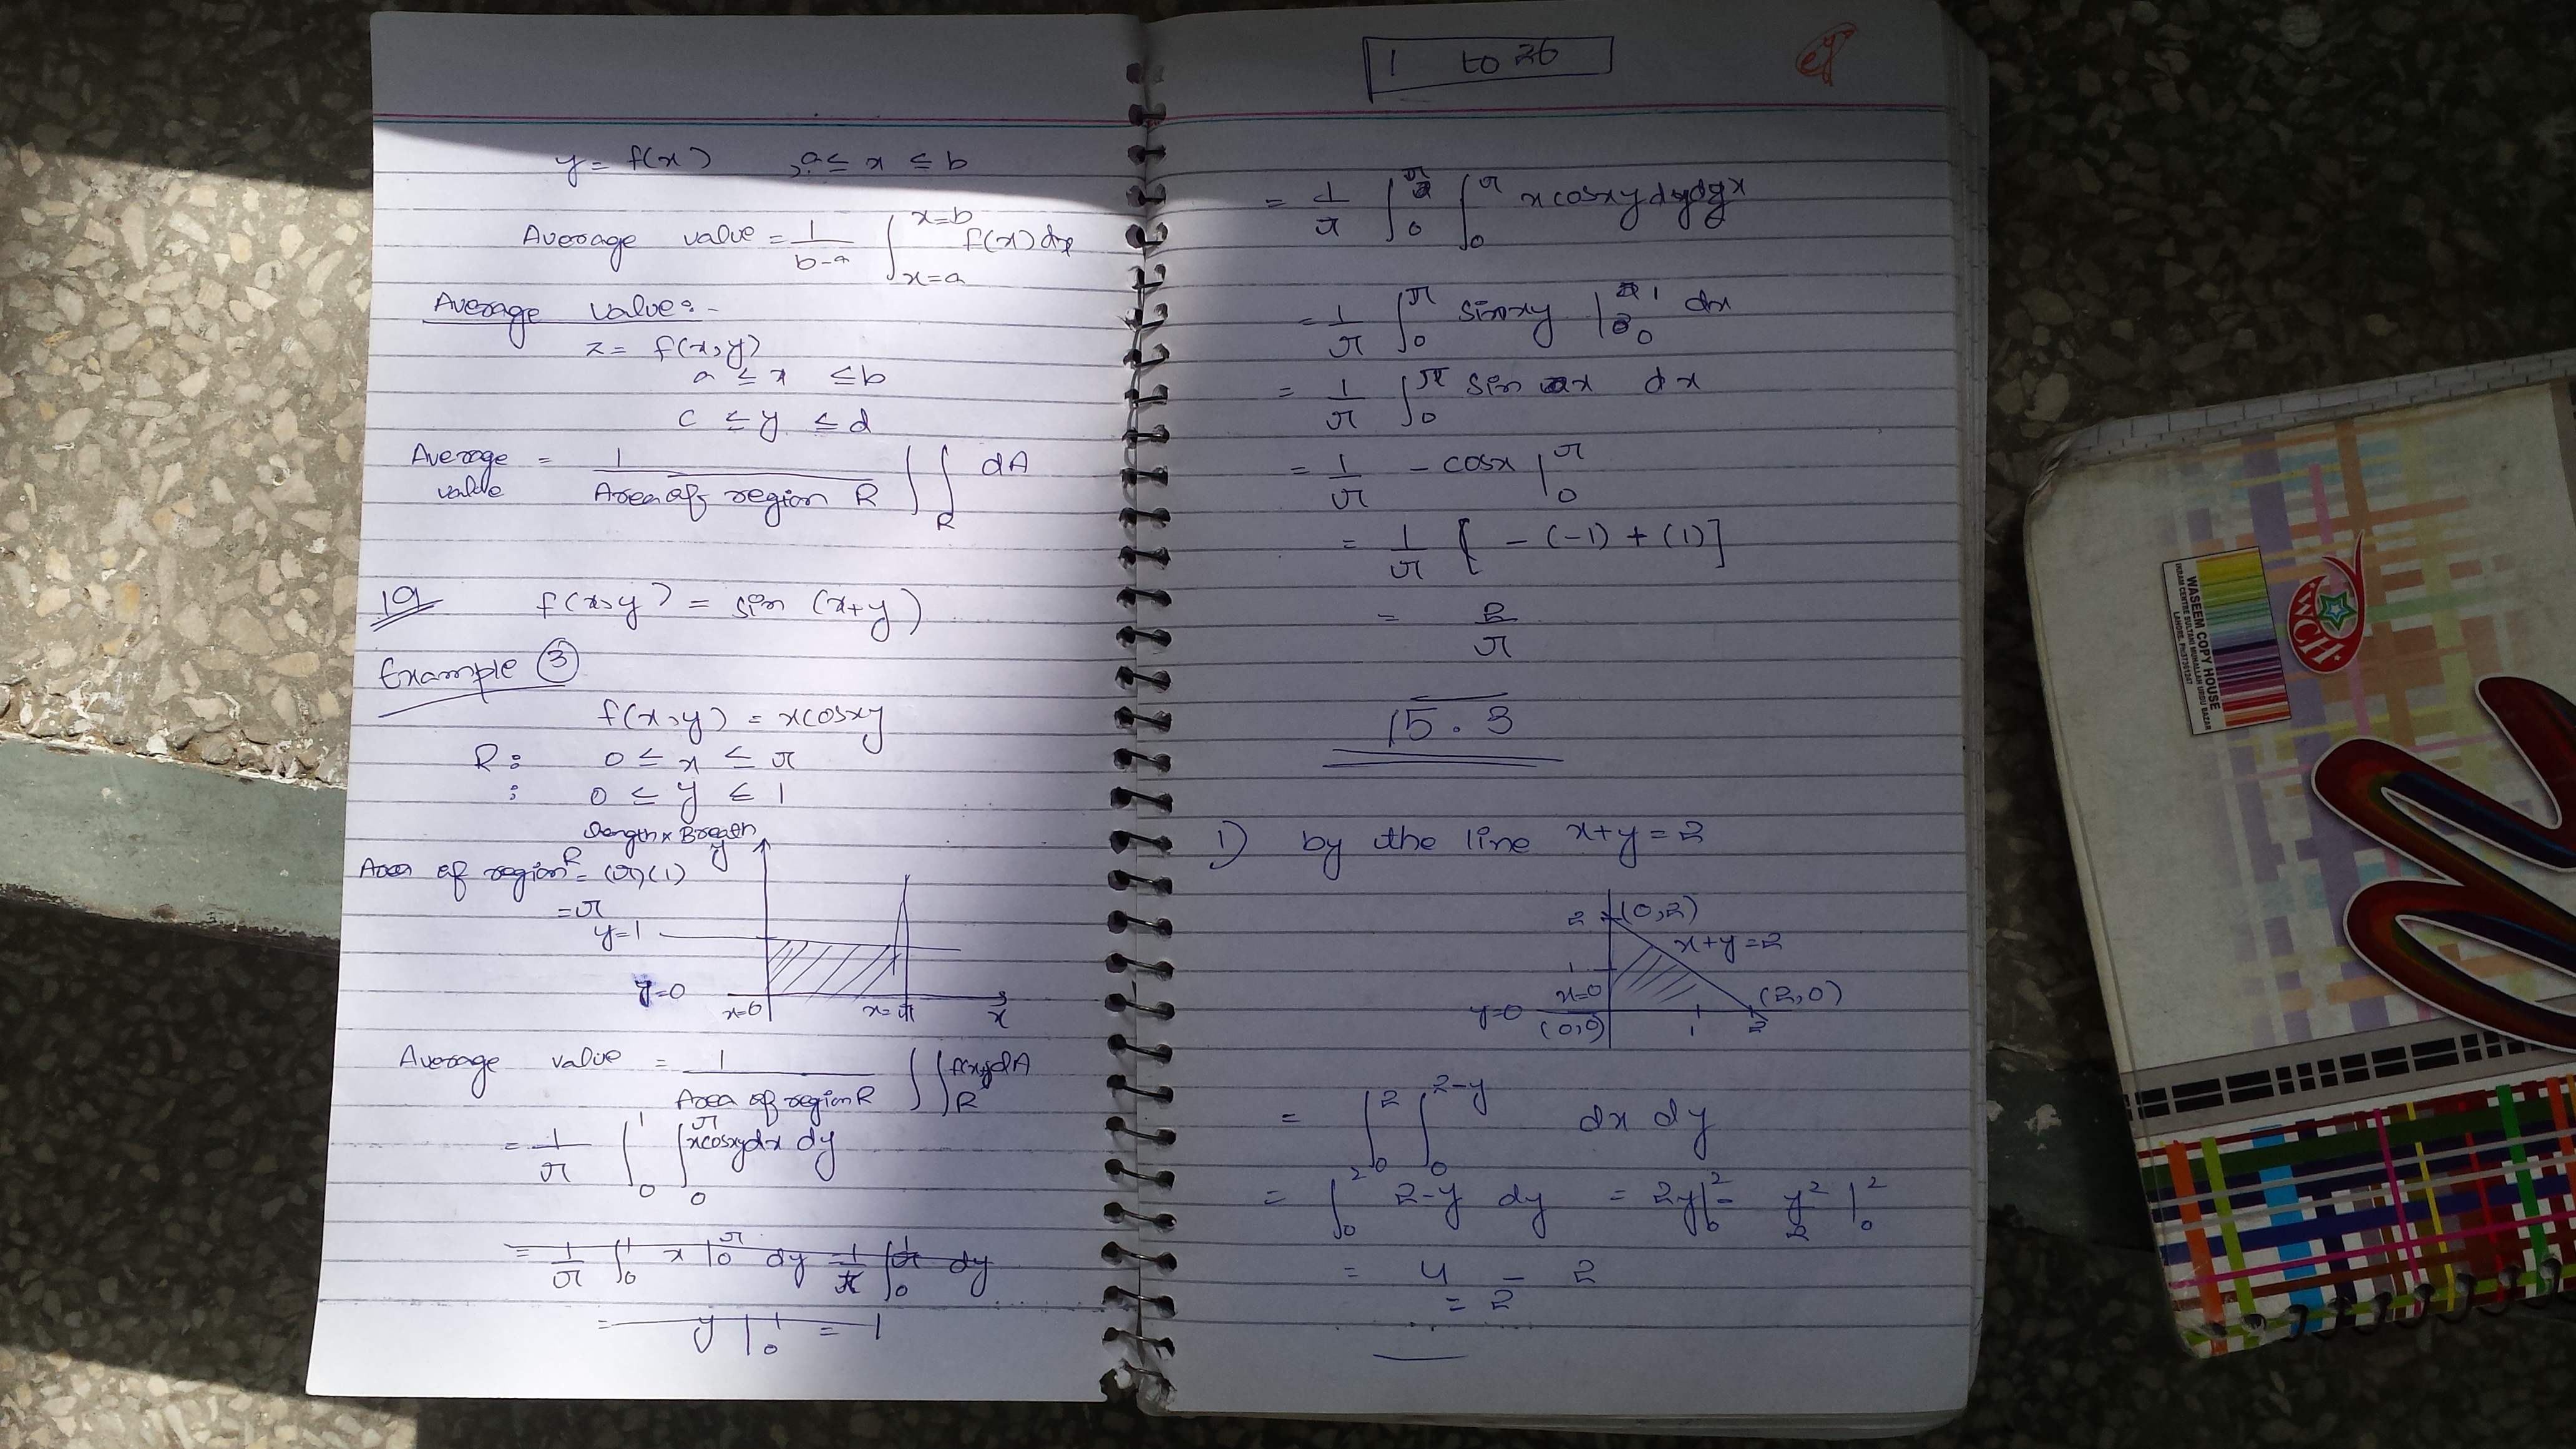 y = f(x) , a ≤ x ≤ b
Average value = 1/(b-a) ∫_{x=a}^{x=b} f(x) dx
Average value:-
z = f(x,y)
a ≤ x ≤ b
c ≤ y ≤ d
Average value = 1/(Area of region R) ∫∫_R dA
19 f(x,y) = sin (x+y)
Example ③
f(x,y) = xcosxy
R : 0 ≤ x ≤ π
: 0 ≤ y ≤ 1
Length x Breath
Area of region R = (π)(1)
= π
y
y=1
y=0
x=0 x=π x
Average value = 1/(Area of region R) ∫∫_R f(x,y)dA
= 1/π ∫_0^1 ∫_0^π xcosxydx dy
= 1/π ∫_0^1 x |_0^π dy = 1/π ∫_0^1 π dy
= y |_0^1 = 1
1 to 26
= 1/π ∫_0^π ∫_0^π xcosxydydx
= 1/π ∫_0^π sinxy |_0^1 dx
= 1/π ∫_0^π sin x dx
= 1/π - cosx |_0^π
= 1/π [ - (-1) + (1) ]
= 2/π
15.3
1) by the line x+y = 2
2 (0,2)
x+y=2
1
x=0 (2,0)
y=0 (0,0) 1 2
= ∫_0^2 ∫_0^{2-y} dx dy
= ∫_0^2 2-y dy = 2y|_0^2 - y²/2 |_0^2
= 4 - 2
= 2
WASEEM COPY HOUSE
WCH